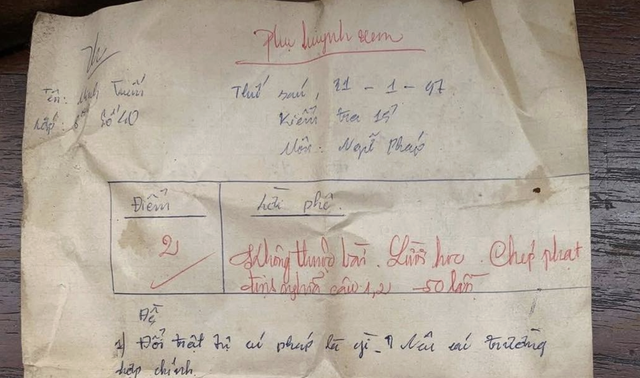 Phụ huynh xem
Tên: Minh Tuấn
Thứ sáu, 31 - 1 - 97
Lớp: số 40
Kiểm tra 15'
Môn: Ngữ Pháp
Điểm
Lời phê.
2
Không thuộc bài. Lười học. Chép phạt
định nghĩa câu 1, 2 50 lần
Đề
1) Đổi trật tự cú pháp là gì? Nêu các trường
hợp chính.